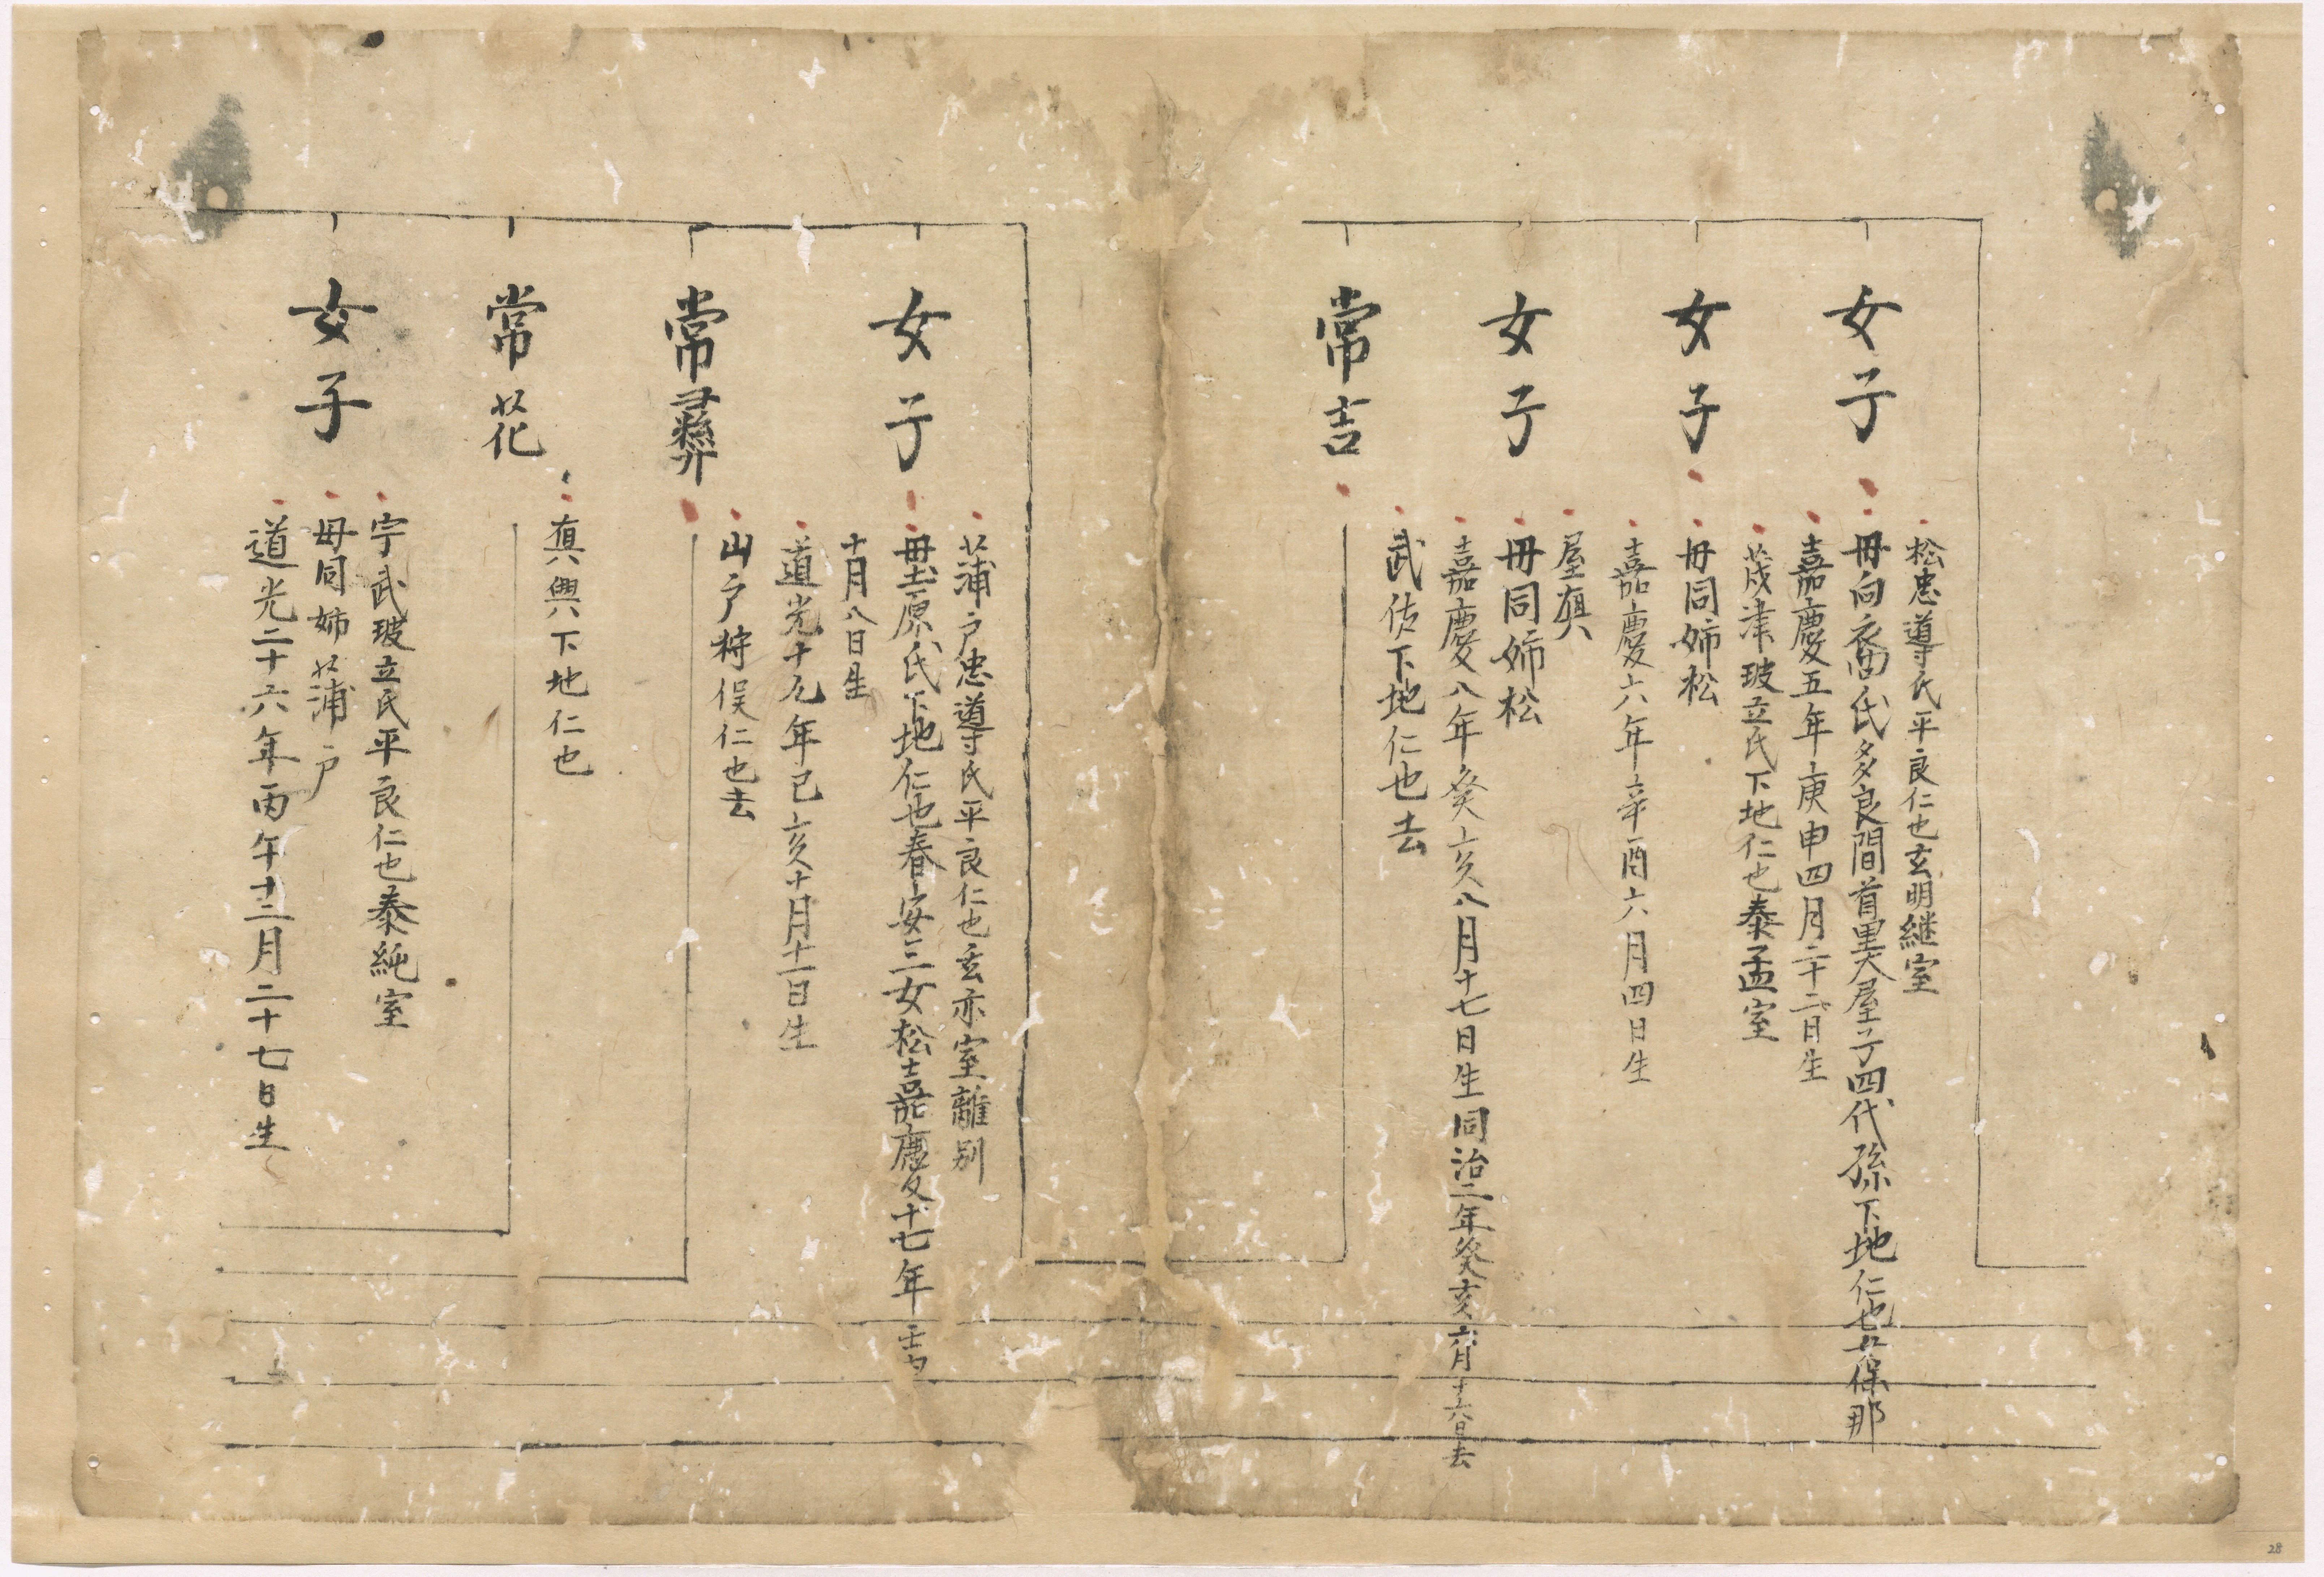 女子
松忠導氏平良仁也玄明継室
母向裔氏多良間首里大屋子四代孫下地仁也女保那
嘉慶五年庚申四月二十二日生
女子
茂津玻立氏下地仁也泰孟室
母同姉松
嘉慶六年辛酉六月四日生
女子
屋真
母同姉松
嘉慶八年癸亥八月十七日生同治二年癸亥六月十六日去
常吉
武佐下地仁也去
女子
蒲戸忠導氏平良仁也玄亦室離別
母土原氏下地仁也春安三女松嘉慶十七年壬申
十月八日生
道光十九年己亥十月十一日生
常彛
山戸狩俣仁也去
常花
真興下地仁也
女子
宇武玻立氏平良仁也泰純室
母同姉蒲戸
道光二十六年丙午十二月二十七日生
28